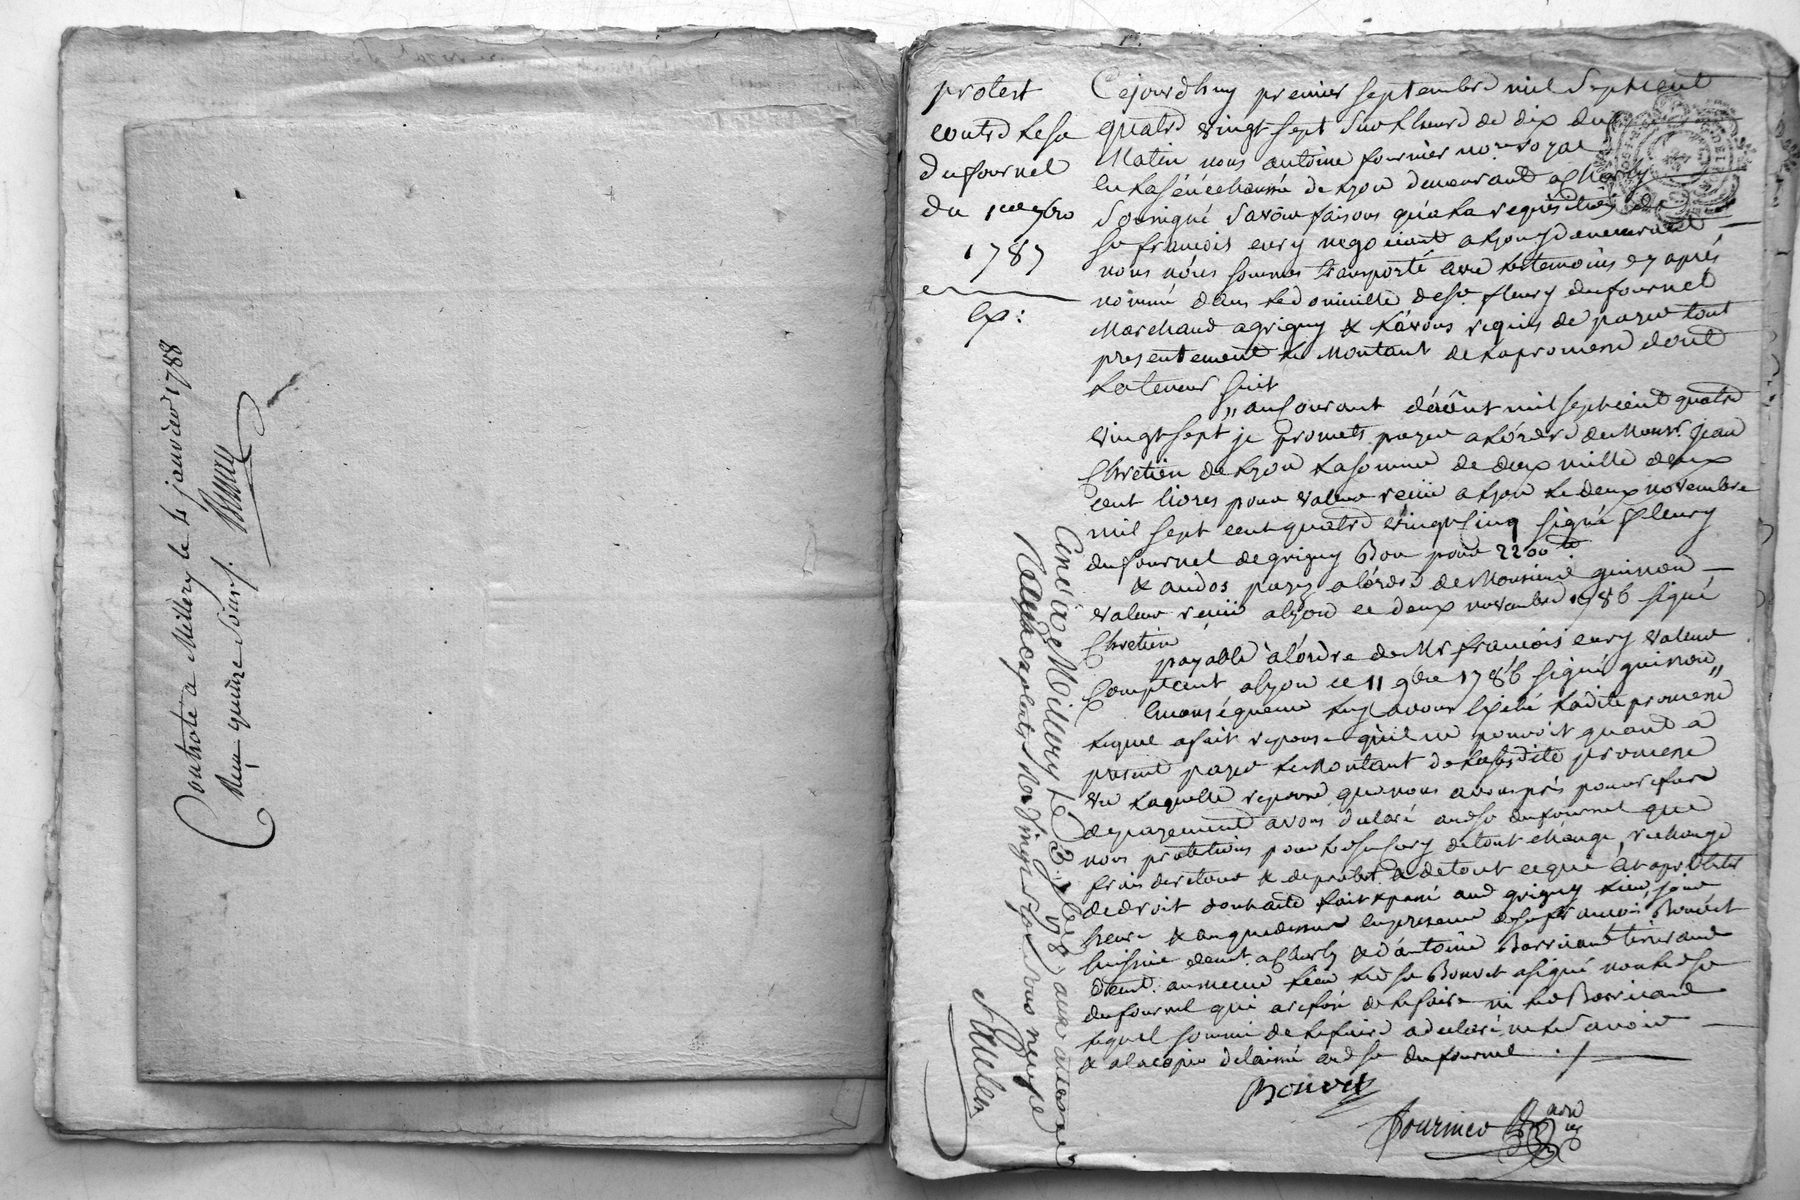 Controlé a Millery le 4 janvier 1788
Reçu quinze sous.
protest
contre le sr
Dufournel
du 1er 7bre
1787
Ex:
Cejourdhuy premier septembre mil sept cent
quatre vingt sept sur lheure de dix du
Matin nous antoine fournier nore royal
en la sénéchaussée de Lyon demeurant a Charly
soussigné savoir faisons qu'a la requisition de
sr francois eury negociant a Lyon y demeurant
nous nous sommes transporté avec les temoins cy après
nommé dans le domicille de sr fleury dufournel
Marchand a grigny & l'avons requis de payer tout
presentement le Montant de la promesse dont
la teneur suit
" au courant d'août mil sept cent quatre
vingt sept je promets payer a l'ordre de Monsr. jean
Chretien de Lyon la somme de deux mille deux
cent livres pour valeur reçüe a Lyon le deux novembre
mil sept cent quatre vingt cinq signé fleury
dufournel de grigny Bon pour 2200 lt
& au dos payez a l'ordre de Monsieur guinon
valeur reçüe a Lyon ce deux novembre 1786 signé
Chretien
payable à l'ordre de Mr francois eury valeur
Comptent a Lyon ce 11 9bre 1786 signé guinon "
En conséquence luy avons exibé ladite promesse
lequel a fait reponse qu'il ne pouvoit quand a
present payer le Montant de la susdite promesse
vu laquelle reponse que nous avons pris pour refus
de payement avons declaré audt sr dufournel que
nous protestions pour ledt sr eury de tout change, rechange
frais de retour & de protest & de tout ce qui est a protester
de droit dont acte fait & passé audt grigny lieu, jour
heure & an que dessus en presence de sr francois Bouvet
huissier demt. a Charly & d'antoine Barricand tisserand
demt. au meme lieu ledt sr Bouvet a signé non ledt sr
dufournel qui a refusé de le faire ni ledt Barricand
lequel sommé de le faire a declaré ne le savoir
& a la copie delaissé audt sr dufournel ./
Bouvet
Fournier